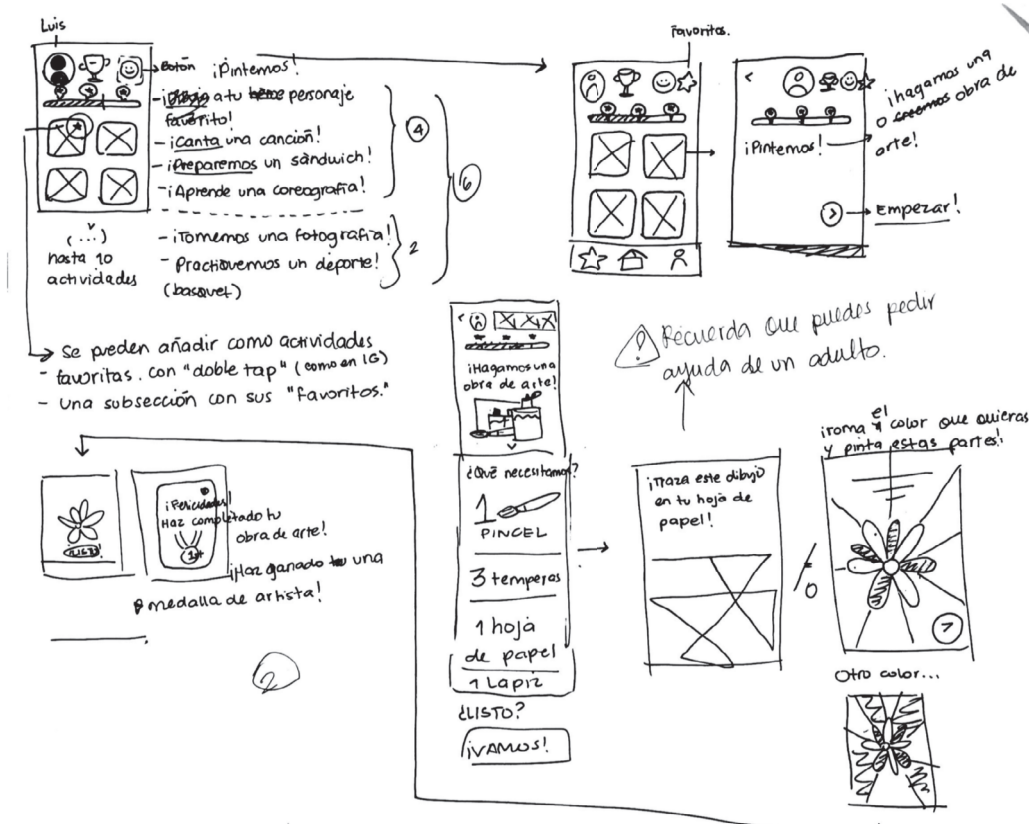 Luis
Botón
¡Pintemos!
- ¡Dibuja a tu heroe personaje
favorito!
- ¡Canta una canción!
- ¡Preparemos un sándwich!
- ¡Aprende una coreografía!
4
- ¡Tomemos una fotografía!
- Practiquemos un deporte!
(basquet)
2
6
(...)
hasta 10
actividades
Se pueden añadir como actividades
- favoritas. con "doble tap" (como en IG)
- una subsección con sus "Favoritos."
Favoritos.
¡Pintemos!
¡hagamos una
o creemos obra de
arte!
Empezar!
¡Hagamos una
obra de arte!
¿Qué necesitamos?
1
PINCEL
3 temperas
1 hoja
de papel
1 Lapiz
¿LISTO?
¡VAMOS!
Recuerda que puedes pedir
ayuda de un adulto.
¡Traza este dibujo
en tu hoja de
papel!
¡Toma el color que quieras
y pinta estas partes!
Otro color...
¡Felicidades!
Haz completado tu
obra de arte!
¡Haz ganado tu una
medalla de artista!
2